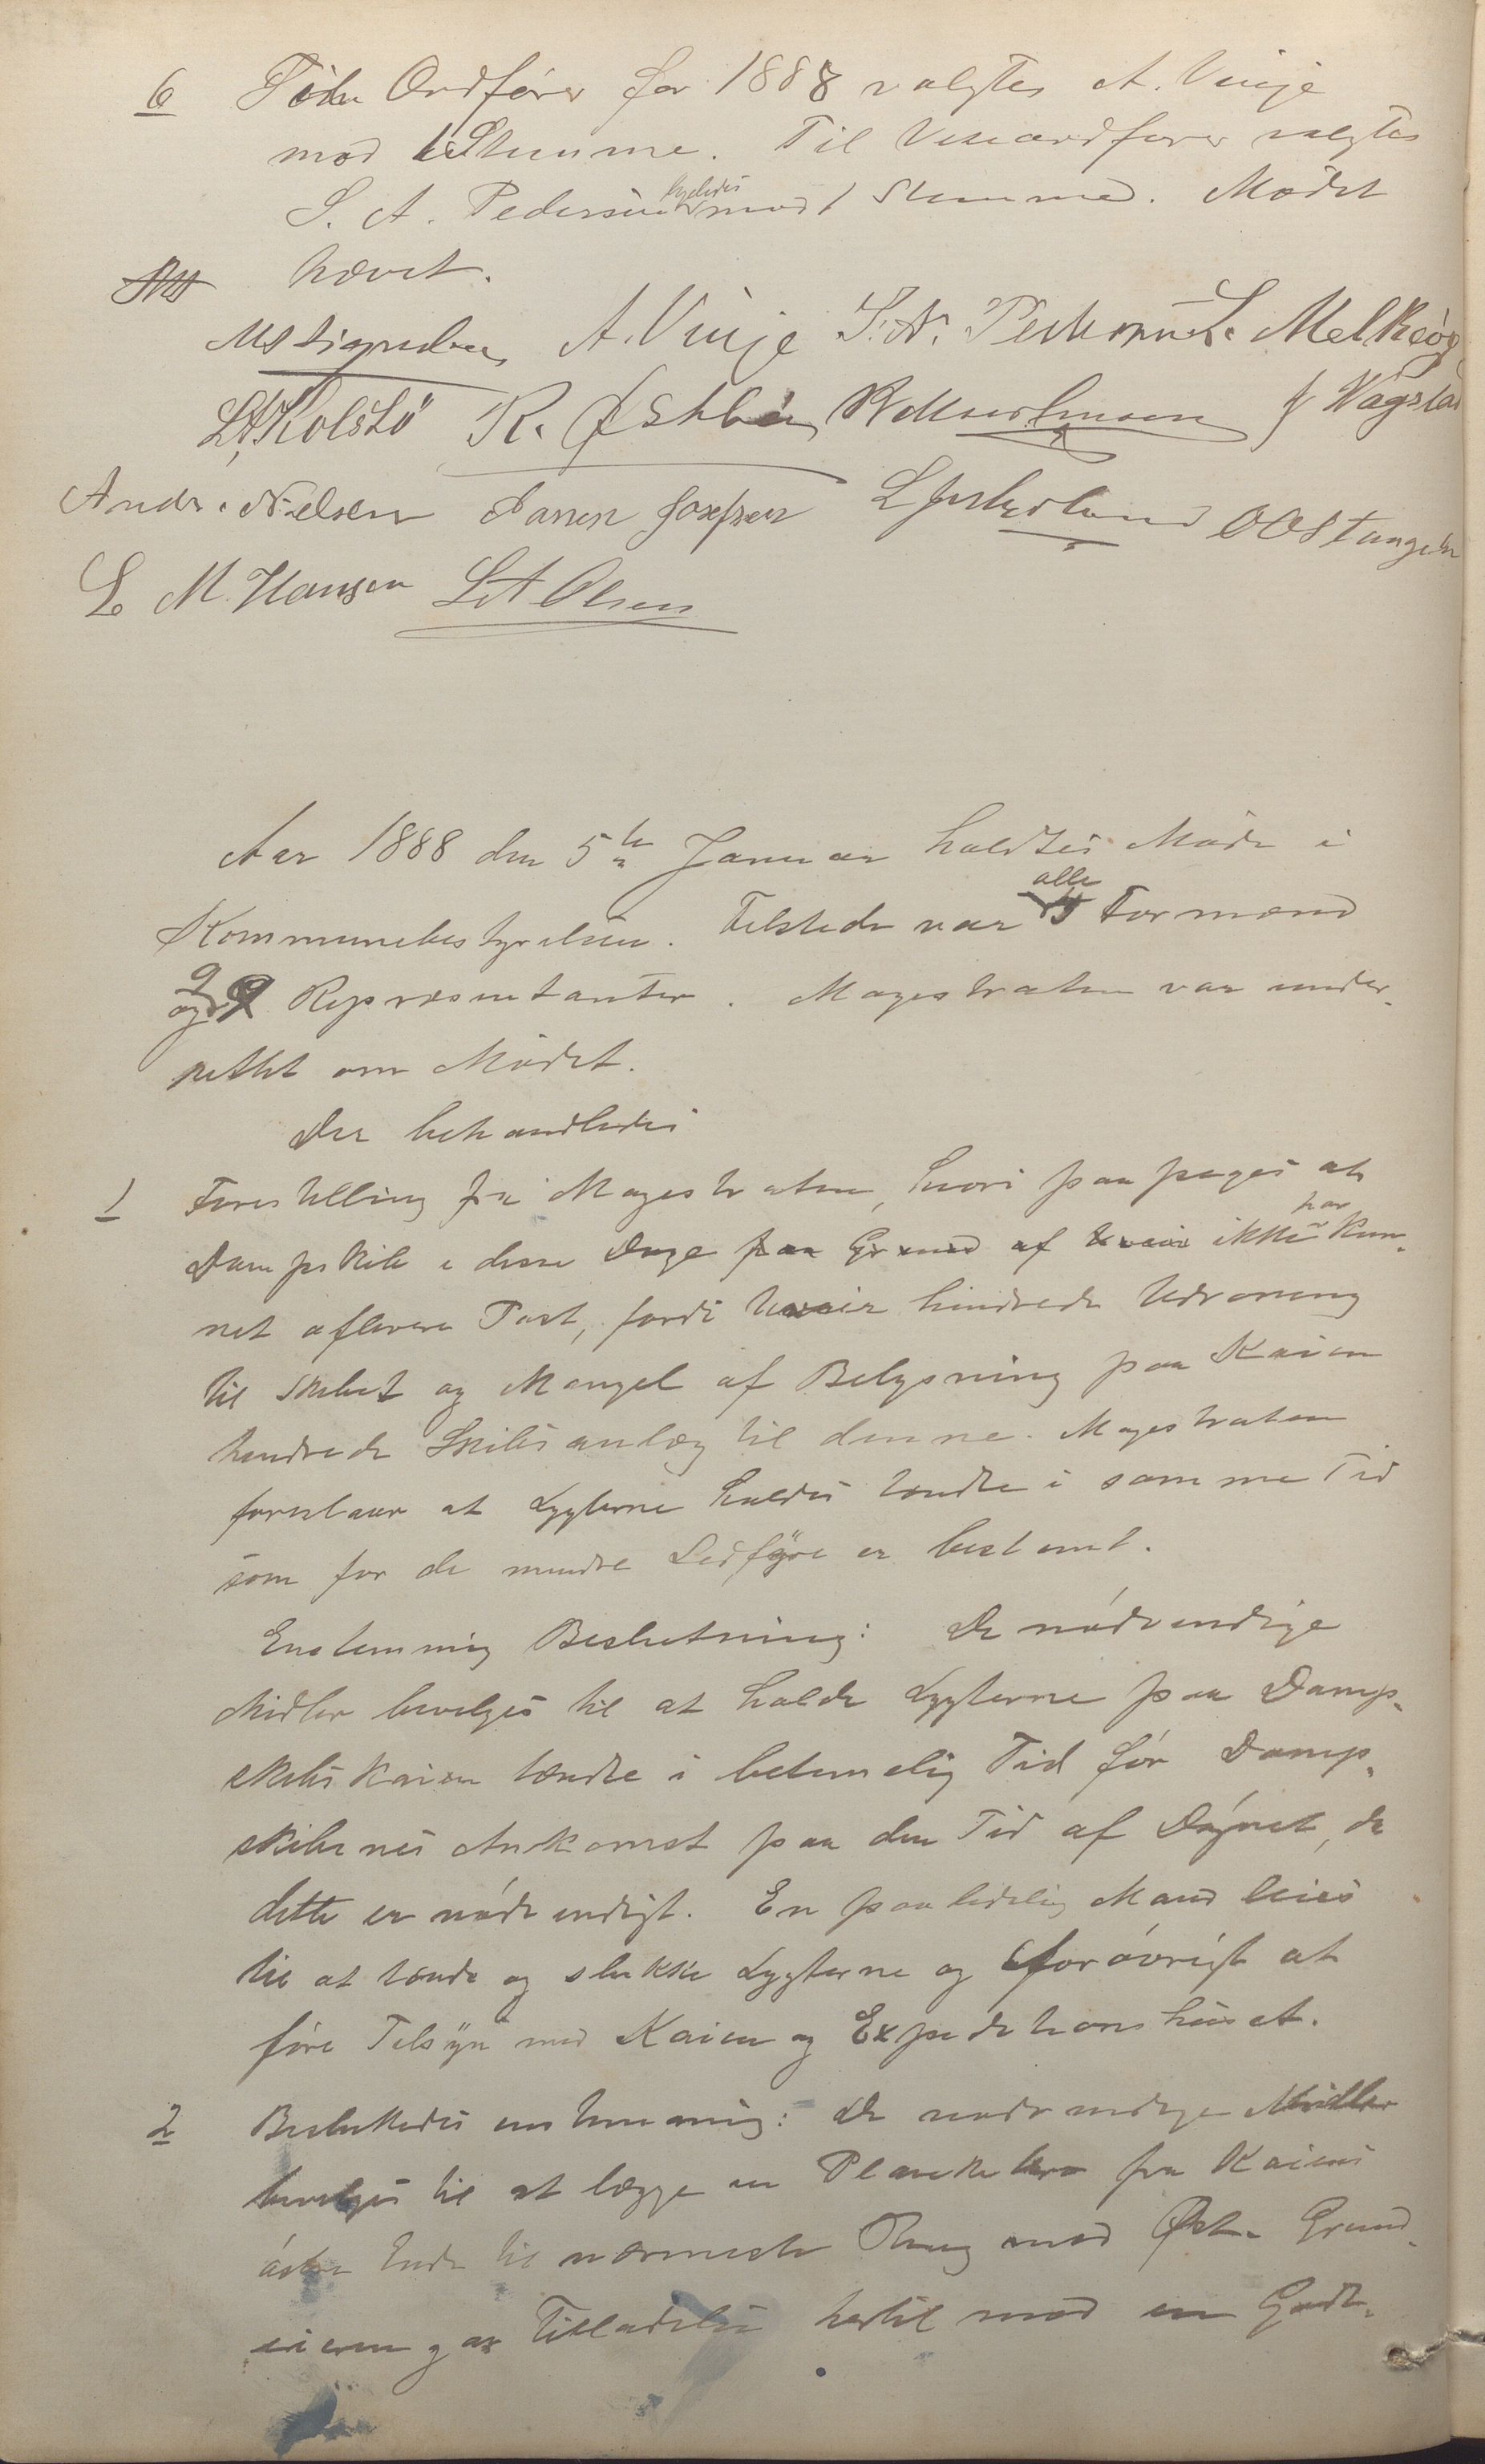 6 Til Ordfører for 1888 valgtes A. Vinje
mod 1 Stemme. Til Viceordfører valgtes
S. A. Pedersen ligeledes mod 1 Stemme. Mødet
hævet.
A. Vinje S. A. Pedersen L. Melkeøg
L. Kolstö R. J Wagstad
Andr. Nielsen Janen Josefsen OOStangeland
L. M. Hansen L A Olsen
Aar 1888 den 5te Januar holdtes Møde i
Kommunebestyrelsen. Tilstede var alle Formænd
og 9 Repræsentanter. Magistraten var under-
rettet om Mødet.
Der behandledes
1 Forestilling fra Magistraten, hvori paapeges at
Dampskibe i disse Dage paa Grund af ikke har kun-
net aflevere Post, fordi hindrede Udroning
til Skibet og Mangel af Belysning paa Kaien
hindrede Skibs anlæg til denne. Magistraten
foreslaar at Lygterne holdes tændte i samme Tid
som for de mindre Ledfÿre er bestemt.
Enstemmig Beslutning: De nødvendige
Midler bevilges til at holde Lygterne paa Damp-
skibskaien tændte i betimelig Tid før Damp-
skibenes Ankomst paa den Tid af Døgnet, da
dette er nødvendigt. En paalidelig Mand leies
til at tænde og slukke Lygterne og forøvrigt at
føre Tilsÿn med Kaien og Expeditionshuset.
2 Besluttedes enstemmig: De nødvendige Midler
bevilges til at lægge en Plankebro fra Kaiens
østre Ende til nærmeste mod Øst. Grund-
eieren gav Tilladelse hertil mod en Godt-